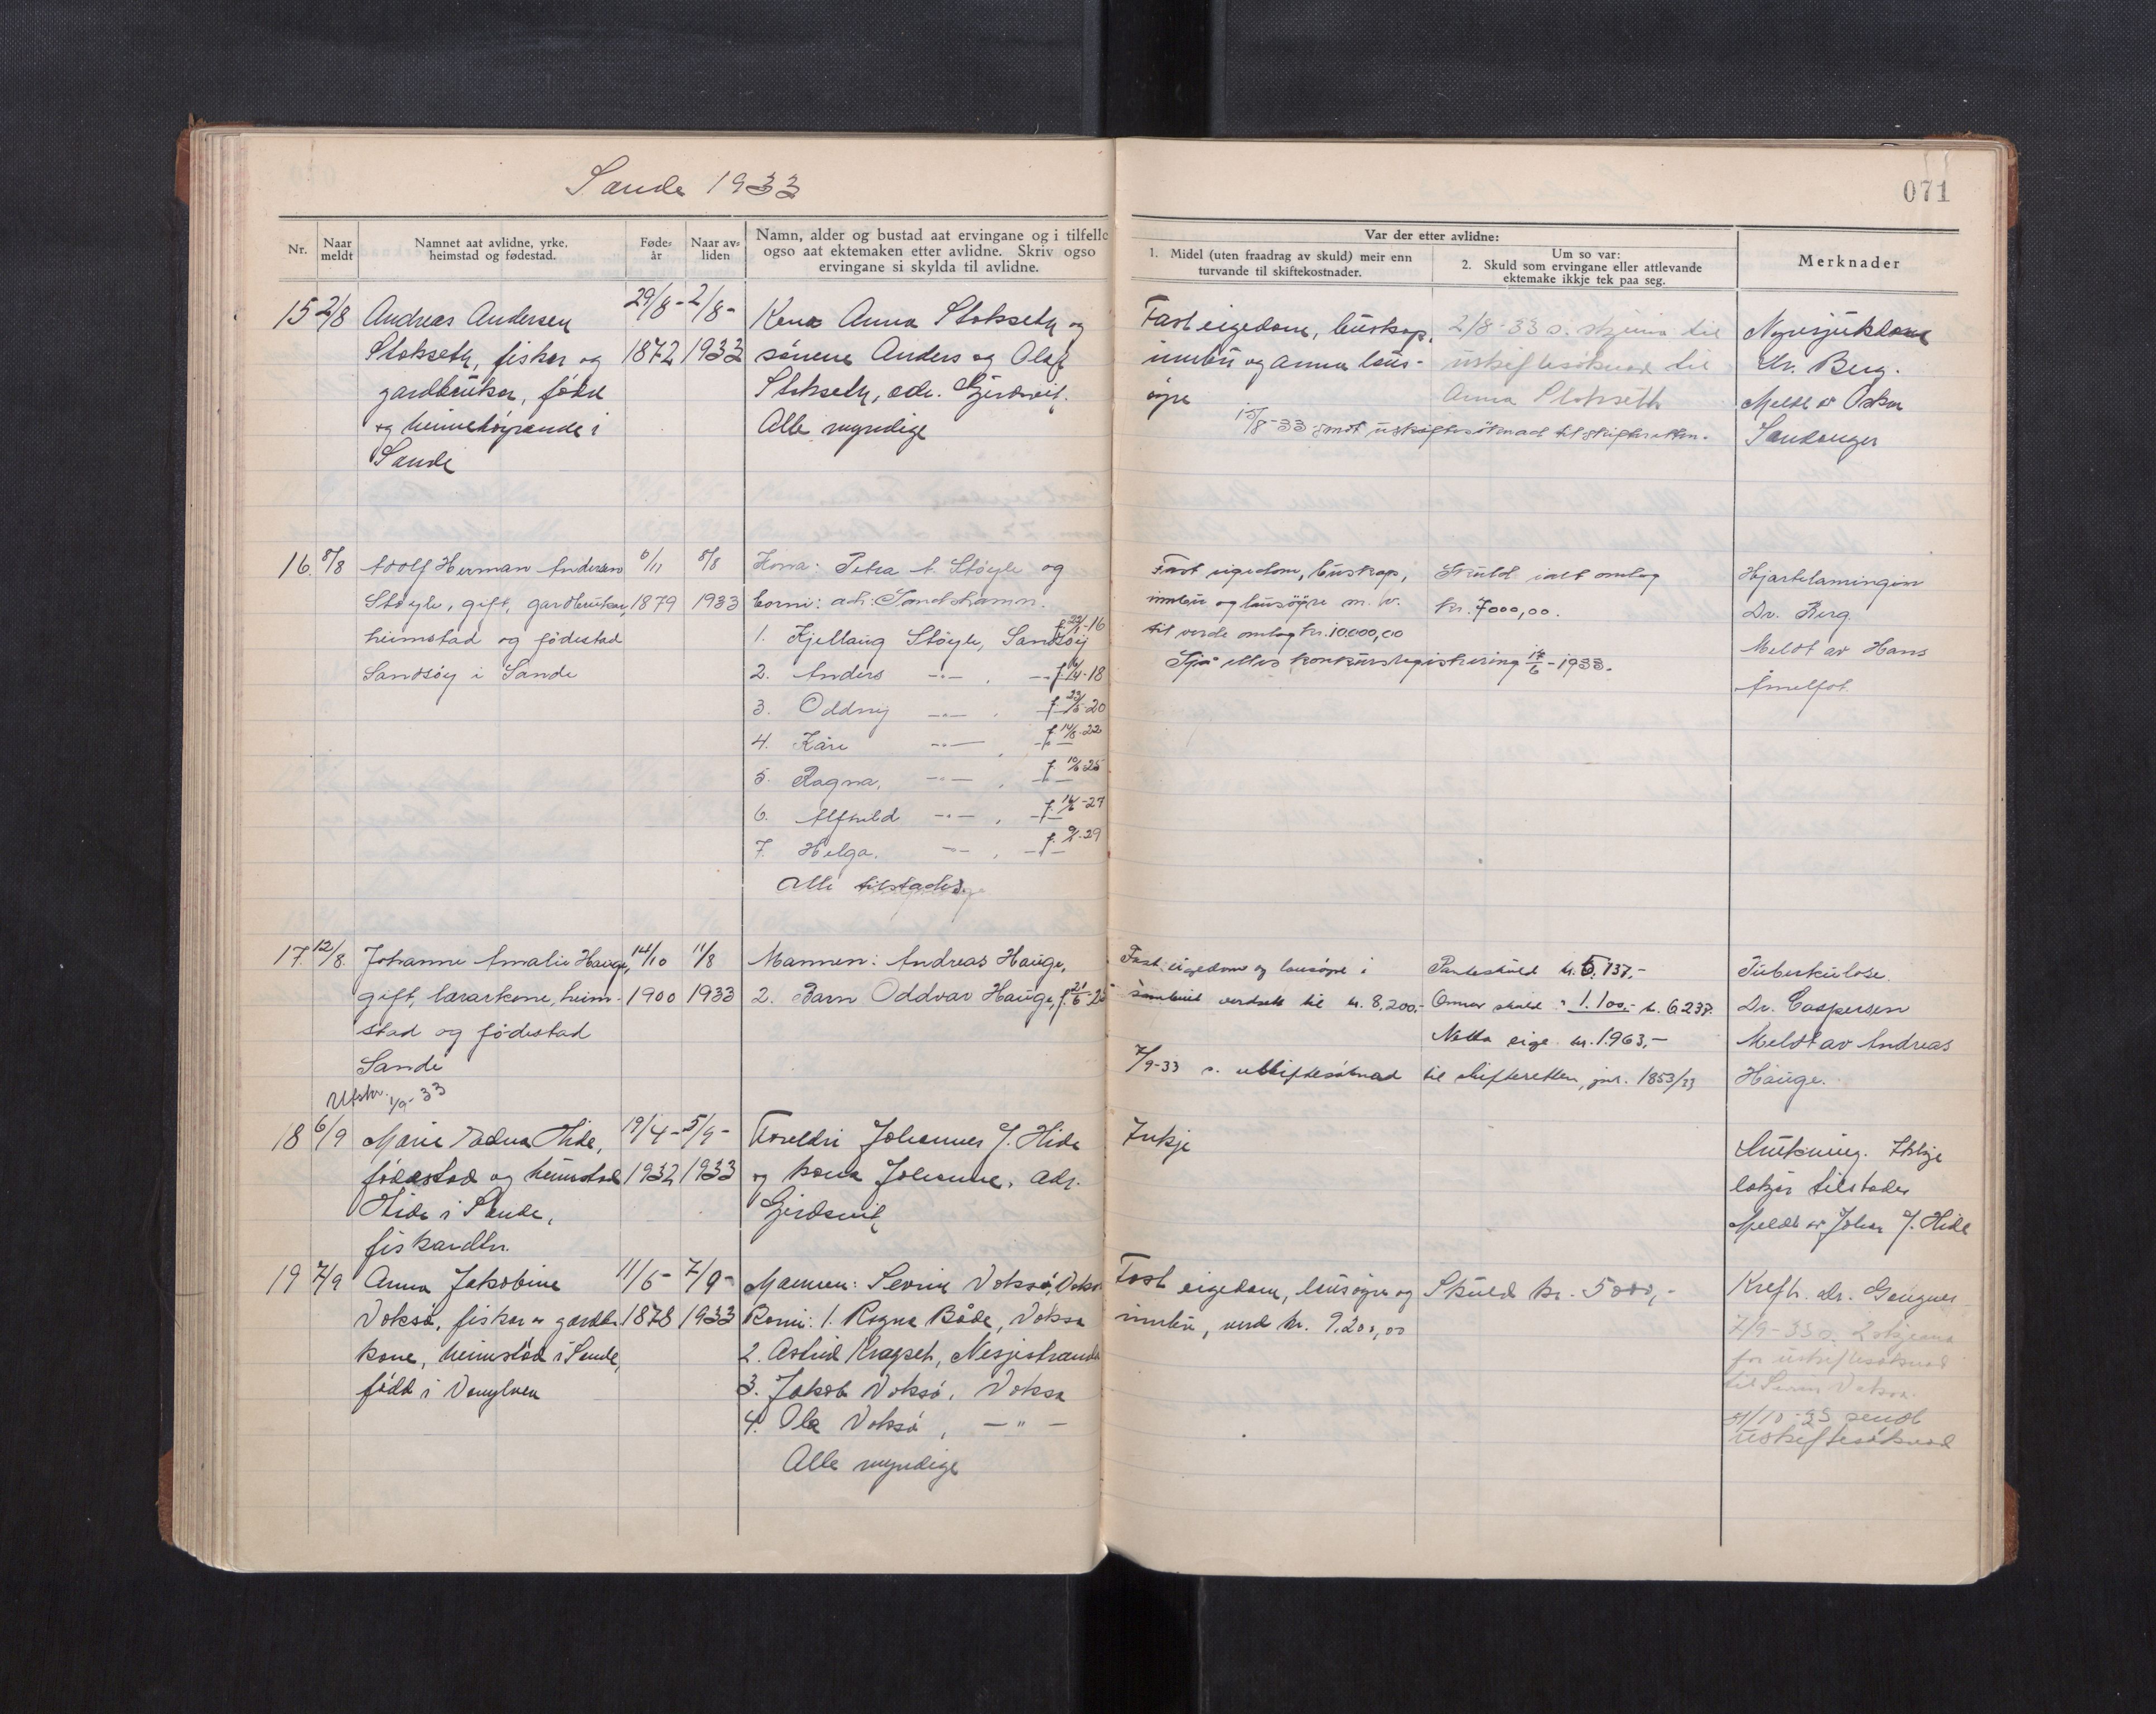 Sande 1933
071
Nr.
Naar meldt
Namnet aat avlidne, yrke, heimstad og fødestad.
Føde-år
Naar av-liden
Namn, alder og bustad aat ervingane og i tilfelle ogso aat ektemaken etter avlidne. Skriv ogso ervingane si skylda til avlidne.
Var der etter avlidne:
1. Midel (uten fraadrag av skuld) meir enn turvande til skiftekostnader.
Um so var:
2. Skuld som ervingane eller attlevande ektemake ikkje tek paa seg.
Merknader
15 2/8
Andreas Andersen
Stokseth, fiskar og
gardbrukar, född
og heimehöyrande i
Sande
29/8-
1872
2/8-
1933
Kona Anna Stokseth og
sönene Anders og Olaf
Stokseth, adr. Gjerdsvik.
Alle myndige
Fast eigedom, buskap,
innbu og anna laus-
öyre
2/8-33 s. skjema til
uskiftesöknad til
Anna Stokseth
15/8-33 sendt uskiftesöknad til skifteretten.
Nyresjukdom
Dr. Berg.
Meldt av Oskar
Sandanger
16. 8/8
Adolf Herman Andersen
Stöyle, gift, gardbrukar,
heimstad og födestad
Sandsöy i Sande
6/11
1879
8/8
1933
Kona: Petra A. Stöyle og
borni: adr: Sandshamn.
1. Kjellaug Stöyle, Sandsöy
2. Anders —"— , —"— f. -18
3. Oddny —"— , f. -20
4. Kåre —"— , f. 14/8-22
5. Ragna, —"— , f. -25
6. Alfhild —"— , f. -27
7. Helga. —"— , f. -29
Alle tilstades.
Fast eigedom, buskap,
innbu og lausöyre m. v.
til verde omlag kr. 10.000,00
Sjå elles konkursregistrering -1933.
Skuld ialt omlag
kr. 7000,00.
Hjartelamingen
Dr. Berg.
Meldt av Hans
Åmelfot.
17. 12/8.
Johanne Amalie Hauge,
gift, lærarkone, heim-
stad og födestad
Sande
Utskr. 1/9-33
14/10
1900
11/8
1933
Mannen: Andreas Hauge,
2. Barn Oddvar Hauge, f.
Fast eigedom og lausöyre i
sambuet verdsett til kr. 8.200,-
7/9-33 s. uskiftesöknad til skifteretten, jnr. 1853/33
Panteskuld kr. 5.137,-
Annan skuld " 1.100,- kr. 6.237.
Netto eige kr. 1.963,-
Tuberkulose.
Dr. Caspersen
Meldt av Andreas
Hauge.
18 6/9
Marie Hide,
födestad og heimstad
Hide i Sande,
fiskardtr.
19/4-
1932
5/9-
1933
Foreldri Johannes J. Hide
og kona Johanne, adr.
Gjerdsvik
Inkje
Ikkje
lækjar tilstades
Meldt av Johan J. Hide
19 7/9
Anna Jakobine
Voksö, fiskar og gardbr.
kone, heimstad i Sande,
född i Vanylven
11/6-
1878
7/9-
1933
Mannen: Severin Voksö, Voksa
Borni: 1. Ragna Både, Voksa
2. Astrid Kragset, Nesjestranda
3. Jakob Voksö, Voksa
4. Ola Voksö, — " —
Alle myndige
Fast eigedom, lausöyre og
innbu, verd kr. 9.200,00
Skuld kr. 5000,-
Kreft. dr.
7/9-33 s. 2 skjema
for uskiftesöknad
til Severin Voksa.
31/10-33 sendt
uskiftesöknad